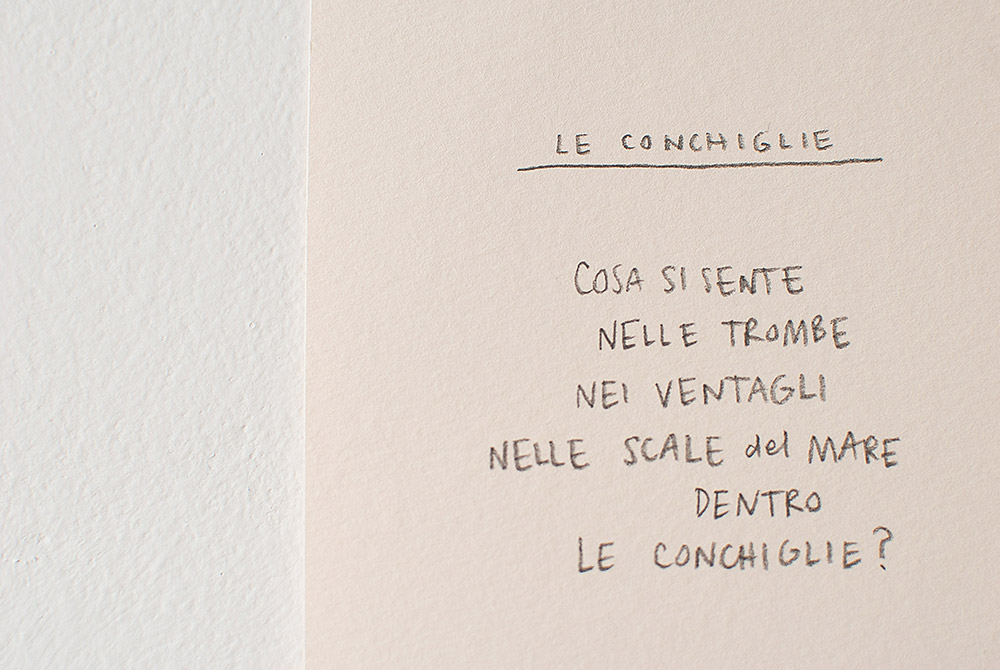 LE CONCHIGLIE
COSA SI SENTE
NELLE TROMBE
NEI VENTAGLI
NELLE SCALE del MARE
DENTRO
LE CONCHIGLIE?